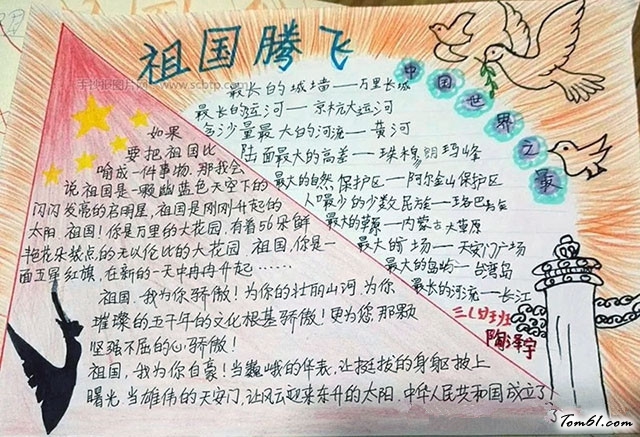 祖国腾飞
中国世界之最
最长的城墙——万里长城
最长的运河——京杭大运河
含沙量最大的河流——黄河
陆面最大的高差——珠穆朗玛峰
最大的自然保护区——阿尔金山保护区
人口最少的少数民族——珞巴族
最大的草原——内蒙古大草原
最大的广场——天安门广场
最大的岛屿——台湾岛
最长的河流——长江
如果
要把祖国比
喻成一件事物,那我会
说祖国是一颗幽蓝色天空下的
闪闪发亮的启明星,祖国是刚刚升起的
太阳。祖国!你是万里的大花园,有着56朵鲜
艳花朵装点的无以伦比的大花园。祖国,你是一
面五星红旗,在新的一天中冉冉升起……
祖国,我为你骄傲!为你的壮丽山河,为你
璀璨的五千年的文化根基骄傲!更为您那颗
坚强不屈的心骄傲!
祖国,我为你自豪!当巍峨的华表,让挺拔的身躯披上
曙光,当雄伟的天安门,让风云迎来东升的太阳,中华人民共和国成立了!
陶泽宇
Tom61.com